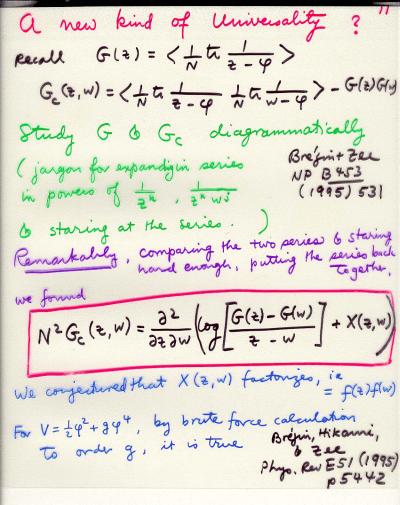 11
A new kind of Universality ?
Recall G(z) = < 1/N tr 1/(z - φ) >
G_c(z,w) = < 1/N tr 1/(z - φ) 1/N tr 1/(w - φ) > - G(z)G(w)
Study G & G_c diagrammatically
(jargon for expanding in series
in powers of 1/z^k , 1/(z^k w^j)
& staring at the series. )
Brézin + Zee
NP B 453
(1995) 531
Remarkably, comparing the two series & staring
hard enough, putting the series back
together,
we found
N² G_c(z,w) = ∂²/∂z∂w (log [ (G(z) - G(w))/(z - w) ] + X(z,w))
We conjectured that X(z,w) factorizes, ie
= f(z)f(w)
For V = ½φ² + gφ⁴, by brute force calculation
to order g, it is true
Brézin, Hikami,
& Zee
Phys. Rev E51 (1995)
p 5442